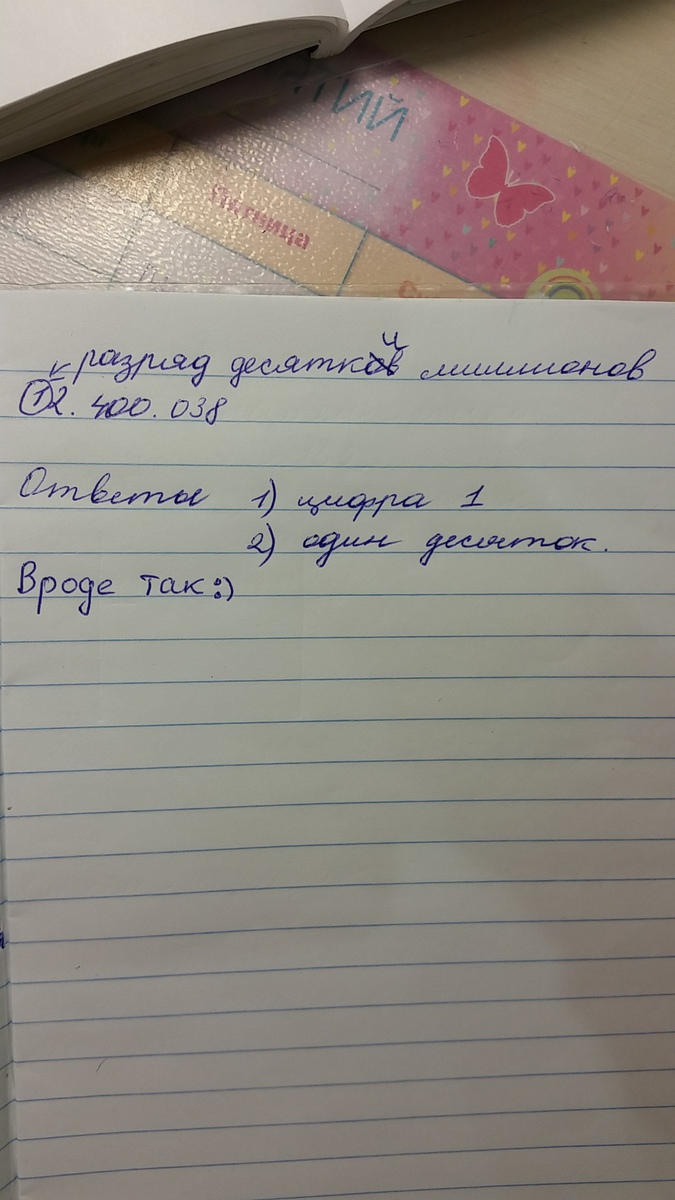 ТИЙ
Пятница
разряд десятки миллионов
12. 400. 038
Ответы 1) цифра 1
2) один десяток.
Вроде так:)